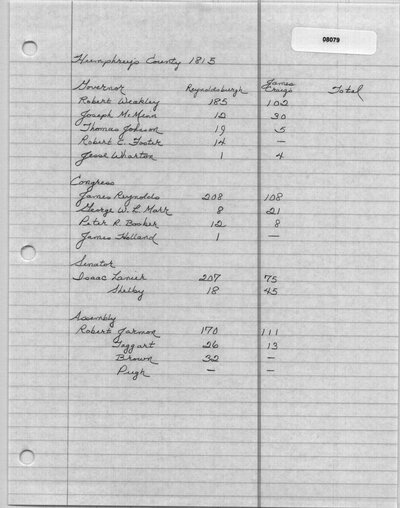 08079
Humphreys County 1815
Governor Reynoldsburgh James Craig's Total
Robert Weakley 185 102
Joseph McMinn 12 30
Thomas Johnson 19 5
Robert C. Foster 14 —
Jesse Wharton 1 4
Congress
James Reynolds 208 108
George W. L. Marr 8 21
Peter R. Booker 12 8
James Holland 1 —
Senator
Isaac Lanier 207 75
Shelby 18 45
Assembly
Robert Jarmon 170 111
Taggart 26 13
Brown 32 —
Pugh — —